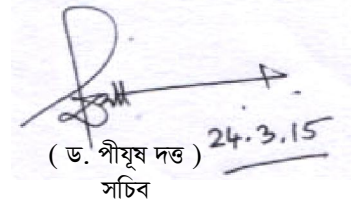 ( ড. পীযূষ দত্ত ) 24.3.15
সচিব